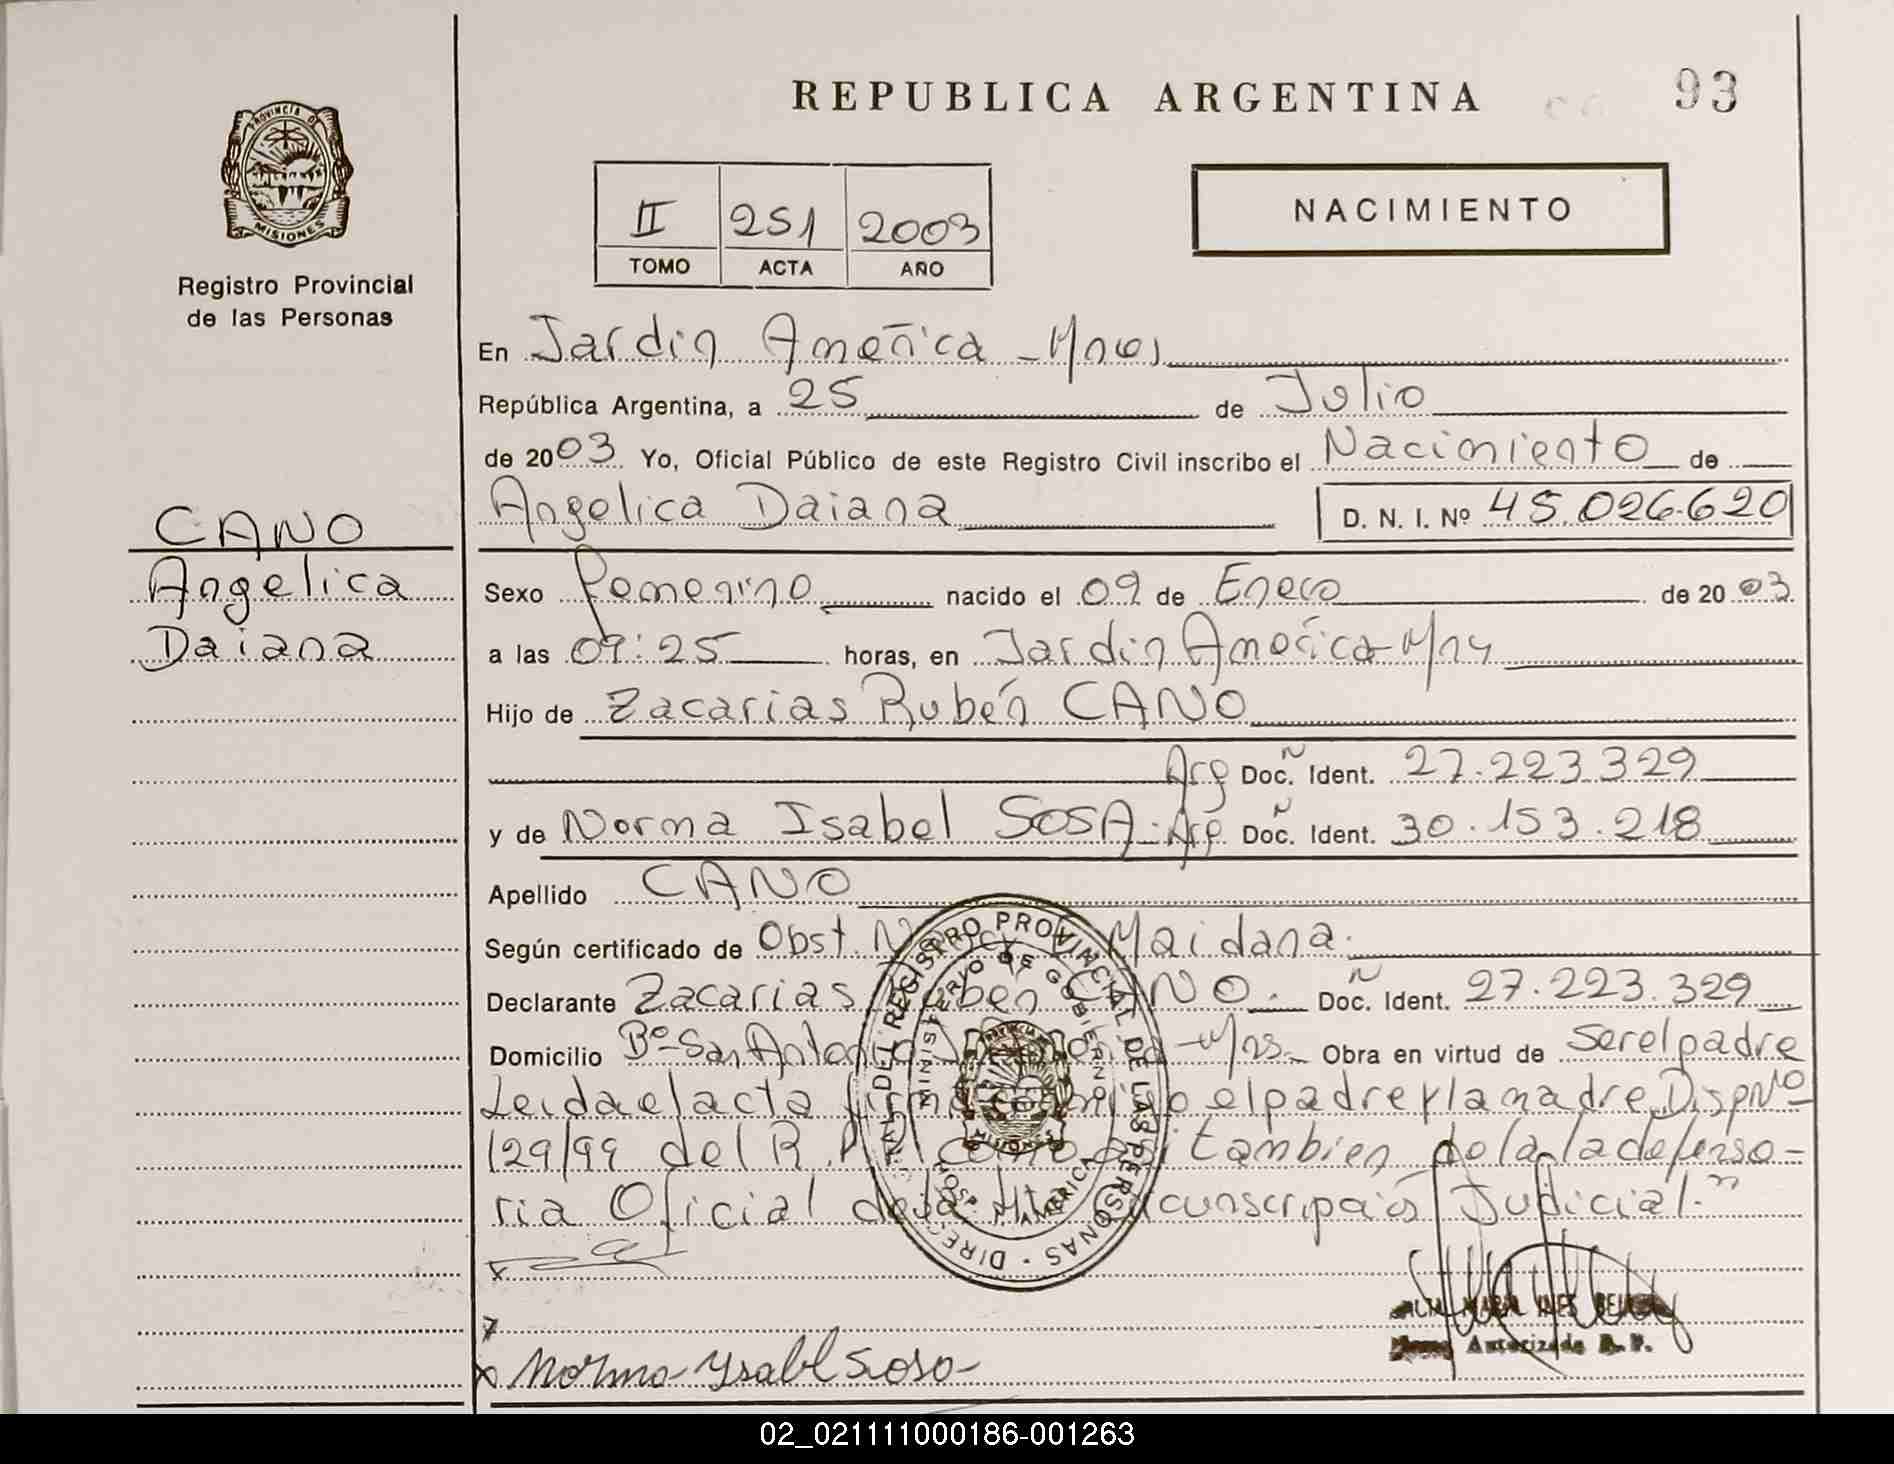 REPUBLICA ARGENTINA
93
PROVINCIA DE
MISIONES
Registro Provincial
de las Personas
II 251 2003
TOMO ACTA AÑO
NACIMIENTO
En Jardin América - Mnes
República Argentina, a 25 de Julio
de 2003. Yo, Oficial Público de este Registro Civil inscribo el Nacimiento de
Angelica Daiana D. N. I. Nº 45.026.620
CANO
Angelica
Daiana
Sexo femenino nacido el 09 de Enero de 2003.
a las 09:25 horas, en Jardin América -
Hijo de Zacarias Rubén CANO
Arg Doc. Ident. 27.223.329
y de Norma Isabel SOSA - Arg Doc. Ident. 30.153.218
Apellido CANO
Según certificado de Obst. Maidana.
Declarante Zacarias Rubén CANO. Doc. Ident. 27.223.329
Domicilio Bº San Antonio - Mns. Obra en virtud de ser el padre
Leida el acta firma conmigo el padre y la madre, Disp Nº
129/99 del R. como asi tambien de la defenso-
ria Oficial de la Circunscripción Judicial.
REGISTRO PROVINCIAL DE LAS PERSONAS
MINISTERIO DE GOBIERNO
MISIONES
HOSP. AMERICA
MARIA INES
Autorizada R. P.
x
x
x Norma Ysabel Sosa
02_021111000186-001263